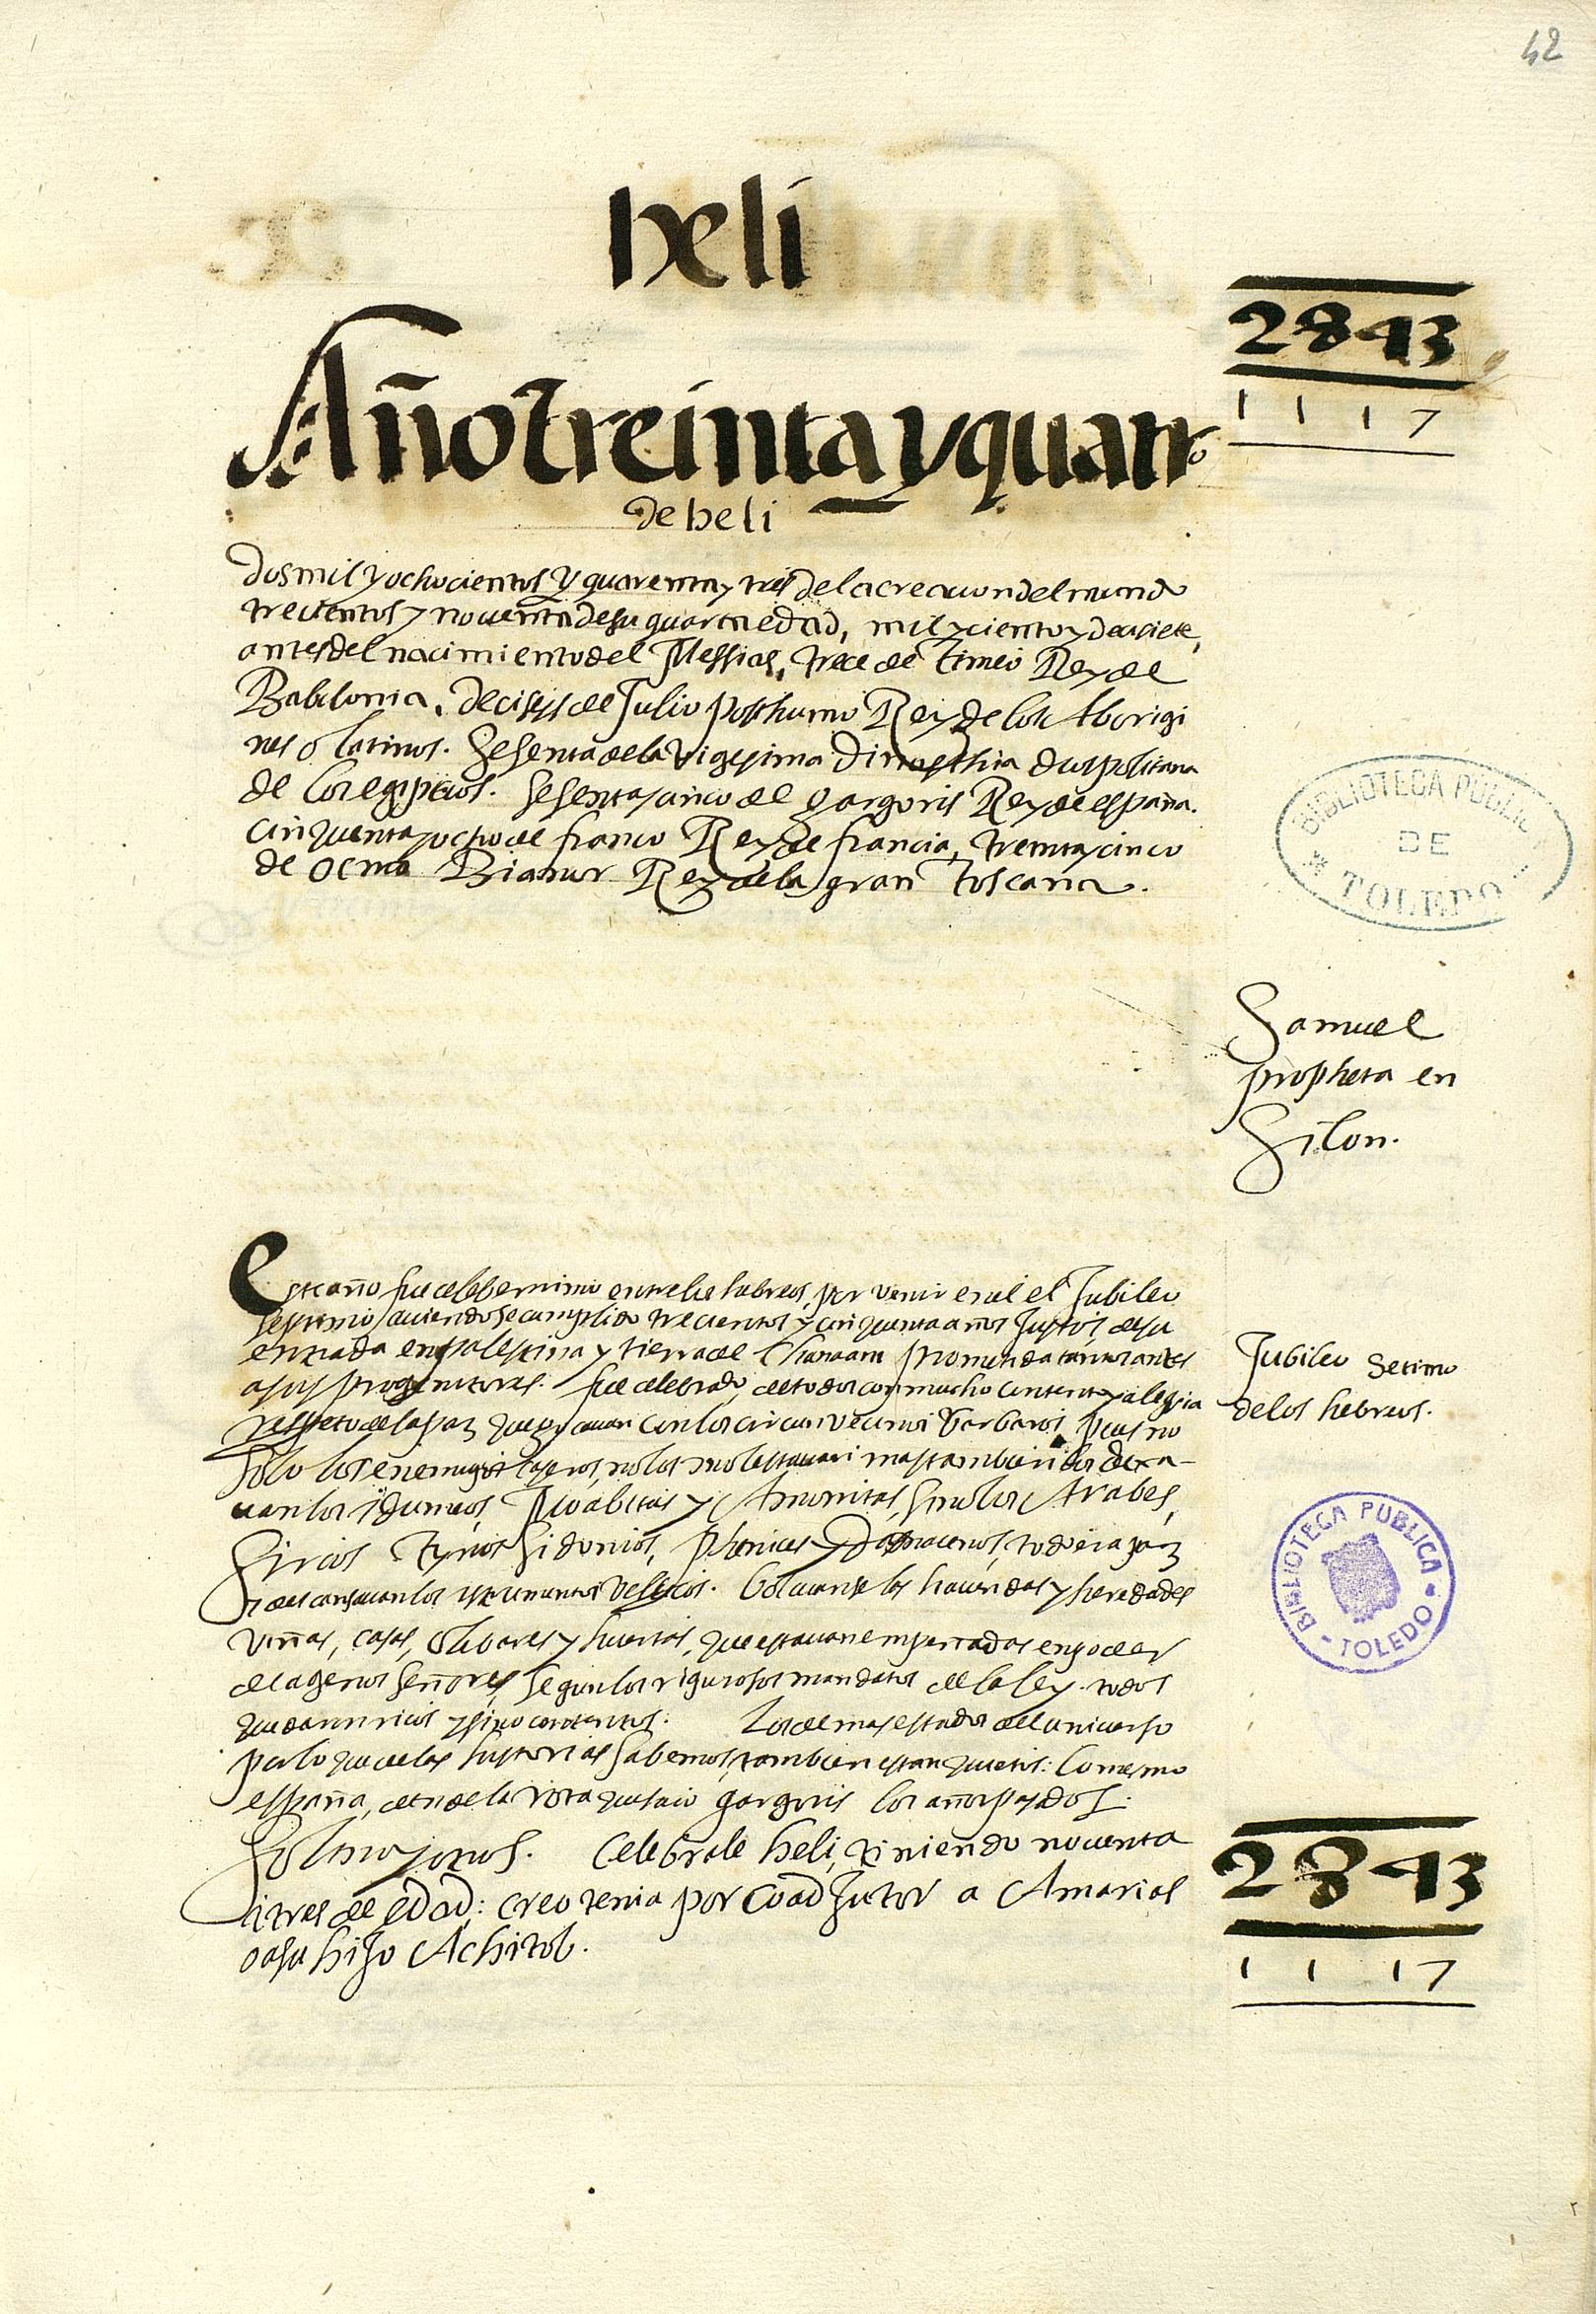 42
heli
2843
1117
Año treinta y quatro
de heli
dos mil y ochocientos y quarenta y tres de la creacion del mundo
trecientos y noventa de su quarta edad, mil y ciento y decisiete,
antes del nacimiento del Messias, trece de Tineo Rey de
Babilonia, deciseys de Julio posthumo Rey de los Aborigi
nes o latinos. Sesenta de la vigesima dinasthia diospolitana
de los egiptios. Sesenta y cinco de gargoris Rey de españa.
cinquenta y ocho de franco Rey de francia, treinta y cinco
de ocno Bianor Rey de la gran Toscana.
BIBLIOTECA PUBLICA
DE
TOLEDO
Samuel
propheta en
Silon.
Este año fue celeberrimo entre los hebreos, por venir en el el Jubileo
septimo aviendose cumplido trecientos y cinquenta años justos de su
entrada en palestina y tierra de Chanaam prometida tantos antes
a sus progenitores. fue celebrado de todos con mucho contento y alegria
respeto de la paz que goçavan con los circunvecinos barbaros, pues no
solo los enemigos caseros no los molestavan mas tambien los dexa-
van los idumeos, Moabitas y Amonitas, Sino los Arabes,
Sirios Tyrios Sidonios, Phenices y Damacenos, todo era paz
y descansavan los instrumentos belicos. bolvianse las haciendas y heredades
viñas, casas, olibares y huertas, que estavan empeñadas en poder
de agenos señores, segun los rigurosos mandatos de la ley. todos
quedavan ricos y sino contentos. Los demas estados del universo
por lo que de las historias sabemos, tambien estan quietos: lo mesmo
españa, desde la rota que saio gargoris los años pasados.
Celebrole heli, tiniendo noventa
i tres de edad: creo tenia por coadjutor a Amarias
o a su hijo Achitob.
Jubileo Setimo
de los hebreos.
BIBLIOTECA PUBLICA
TOLEDO
2843
1117